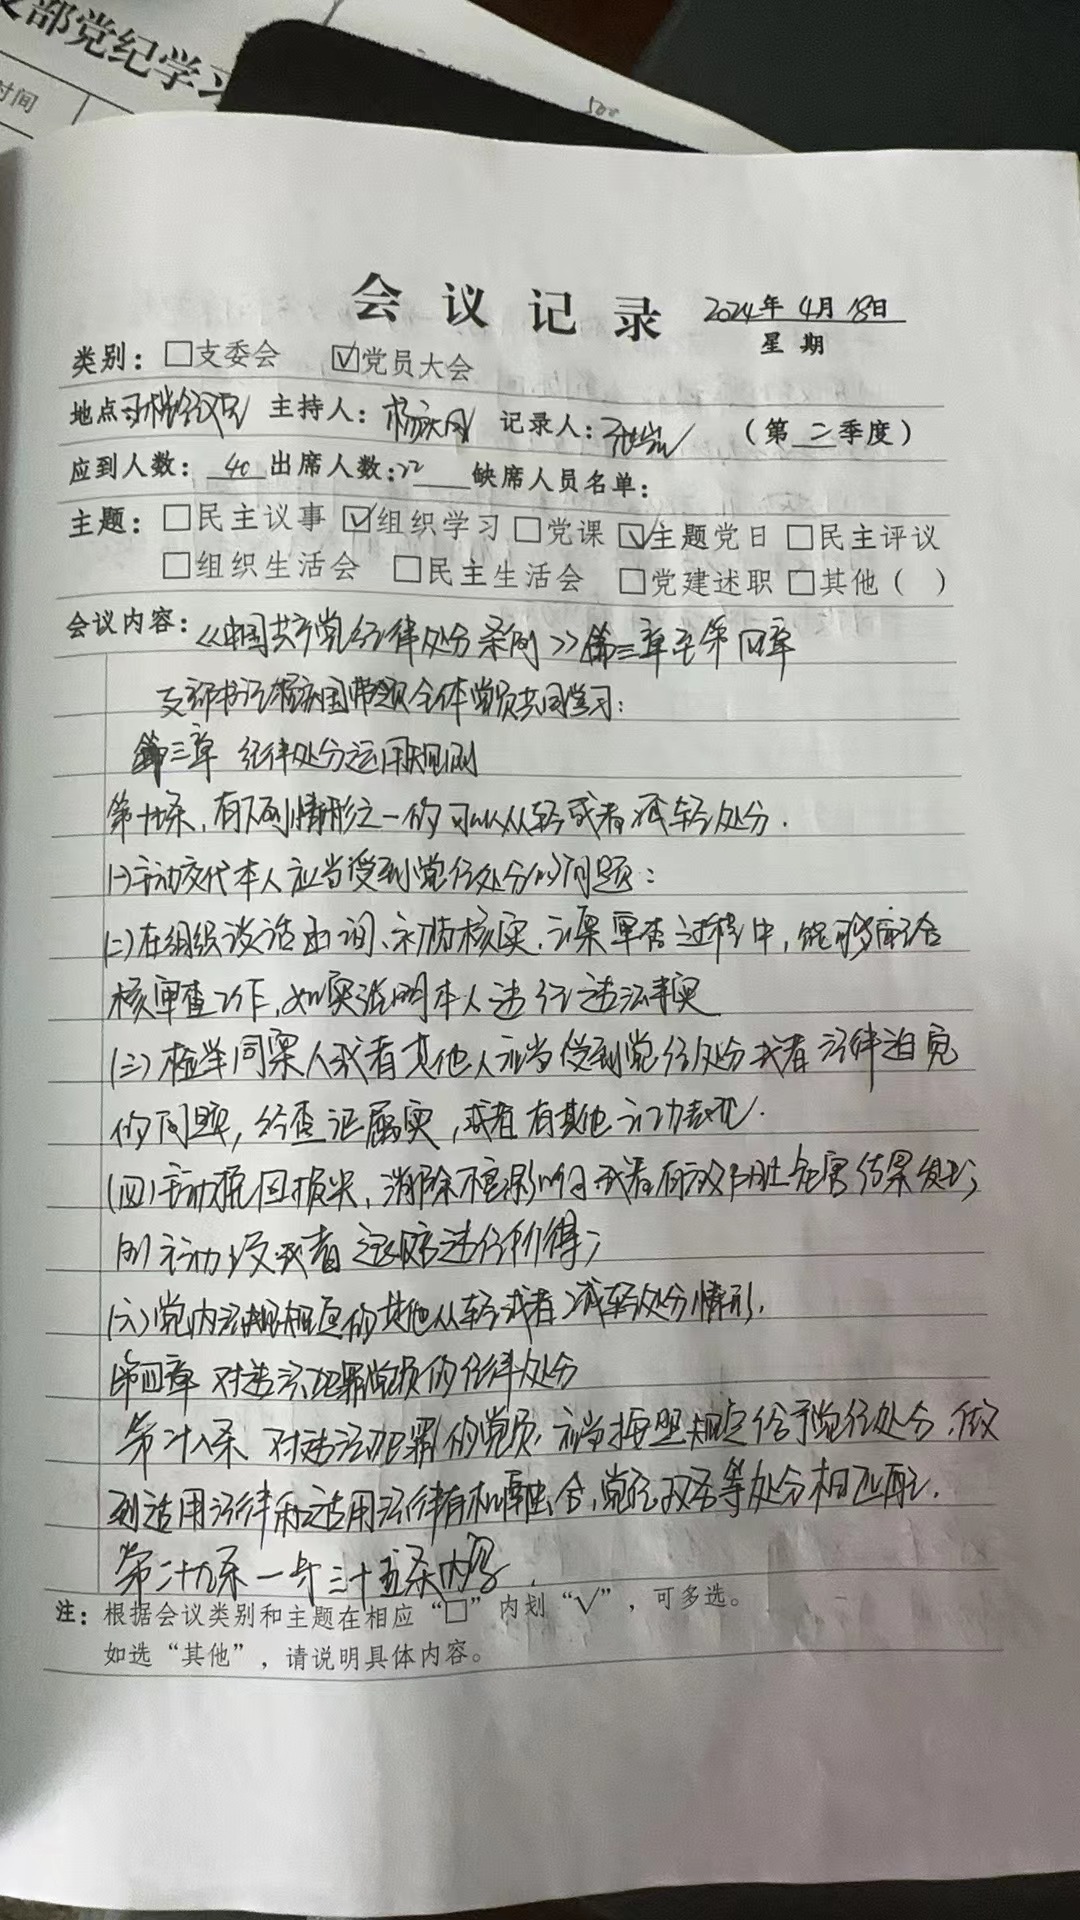 支部党纪学习
时间
500
会议记录 2024年4月18日
星期
类别：□支委会 ☑党员大会
地点 主持人：杨庆国 记录人： （第二季度）
应到人数：40 出席人数：22 缺席人员名单：
主题：□民主议事 ☑组织学习 □党课 ☑主题党日 □民主评议
□组织生活会 □民主生活会 □党建述职 □其他（ ）
会议内容：《中国共产党纪律处分条例》第三章至第四章
支部书记杨庆国带领全体党员共同学习：
第三章 纪律处分运用规则
第十七条，有下列情形之一的可以从轻或者减轻处分．
(一)主动交代本人应当受到党纪处分的问题：
(二)在组织谈话函询、初步核实、立案审查过程中，能够配合
核审查工作，如实说明本人违纪违法事实
(三)检举同案人或者其他人应当受到党纪处分或者法律追究
的问题，经查证属实，或者有其他立功表现．
(四)主动挽回损失、消除不良影响或者有效阻止危害结果发生；
主动上交或者退赔违纪所得；
(六)党内法规规定的其他从轻或者减轻处分情形．
第四章 对违法犯罪党员的纪律处分
第二十八条 对违法犯罪的党员，应当按照规定给予党纪处分，做
到适用法律和适用法律有机融合，党纪政务等处分相匹配．
第二十九条一 三十五条内容．
注：根据会议类别和主题在相应“□”内划“√”，可多选。
如选“其他”，请说明具体内容。